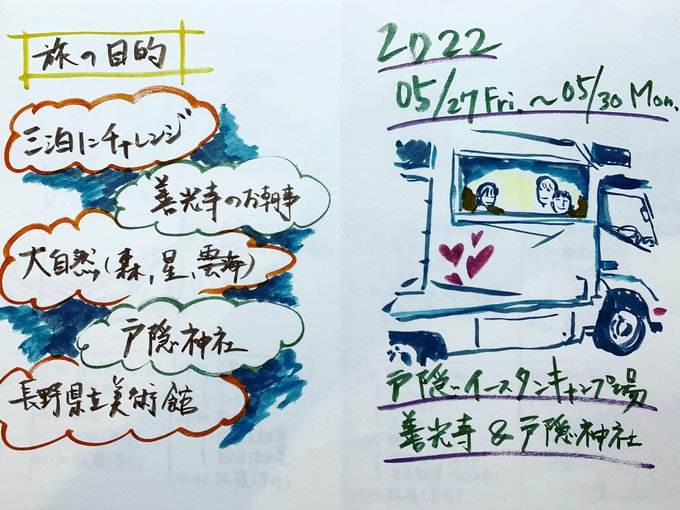 旅の目的
三泊にチャレンジ
善光寺のお朝事
大自然(森,星,雲海)
戸隠神社
長野県立美術館
2022
05/27 Fri.〜05/30 Mon.
戸隠イースタンキャンプ場
善光寺&戸隠神社